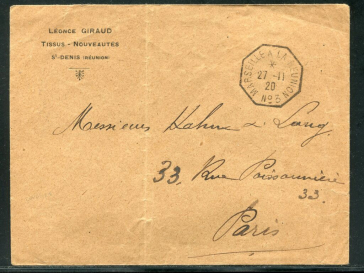 LÉONCE GIRAUD
TISSUS - NOUVEAUTÉS
ST-DENIS (RÉUNION)
MARSEILLE A LA REUNION Nº3
27 - 11
20
Messieurs Kahn & Lang.
33, Rue Poissonnière
33.
Paris